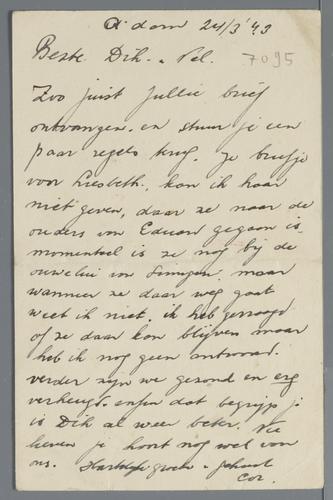 A'dam 24/3 '43
Beste Dik. en Nel.
7095
Zoo juist jullie brief
ontvangen. en stuur je een
paar regels trug. Je briefje
voor Liesbeth. kan ik haar
niet geven, daar ze naar de
ouders van Eduard gegaan is
momenteel is ze nog bij de
ouwelui in maar
wanneer ze daar weg gaat
weet ik niet. ik heb gevraagd
of ze daar kan blijven maar
heb ik nog geen antwoord.
verder zijn we gezond en erg
verheugt. enfin dat begrijp je
is Dik al weer beter. Nu
lieven je hoort nog wel van
ons. Hartelijk groeten en gekust
Cor.